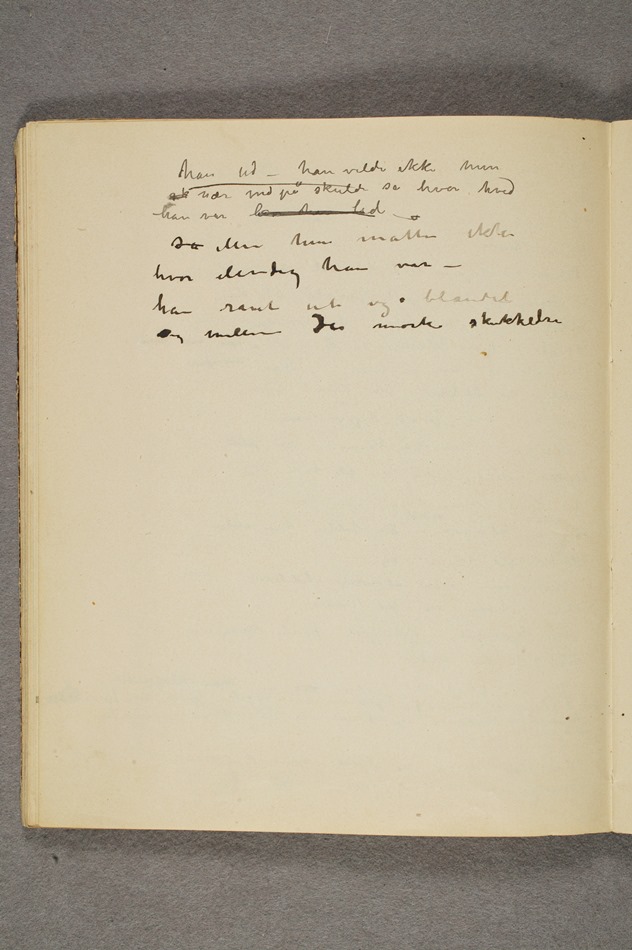 han ud – han vilde ikke hun
nær ind på skulde se hvor hvid
han var
se Men hun måtte ikke
hvor elendig han var –
han ranet ut og blandet
sig mellem de mørke skikkelser